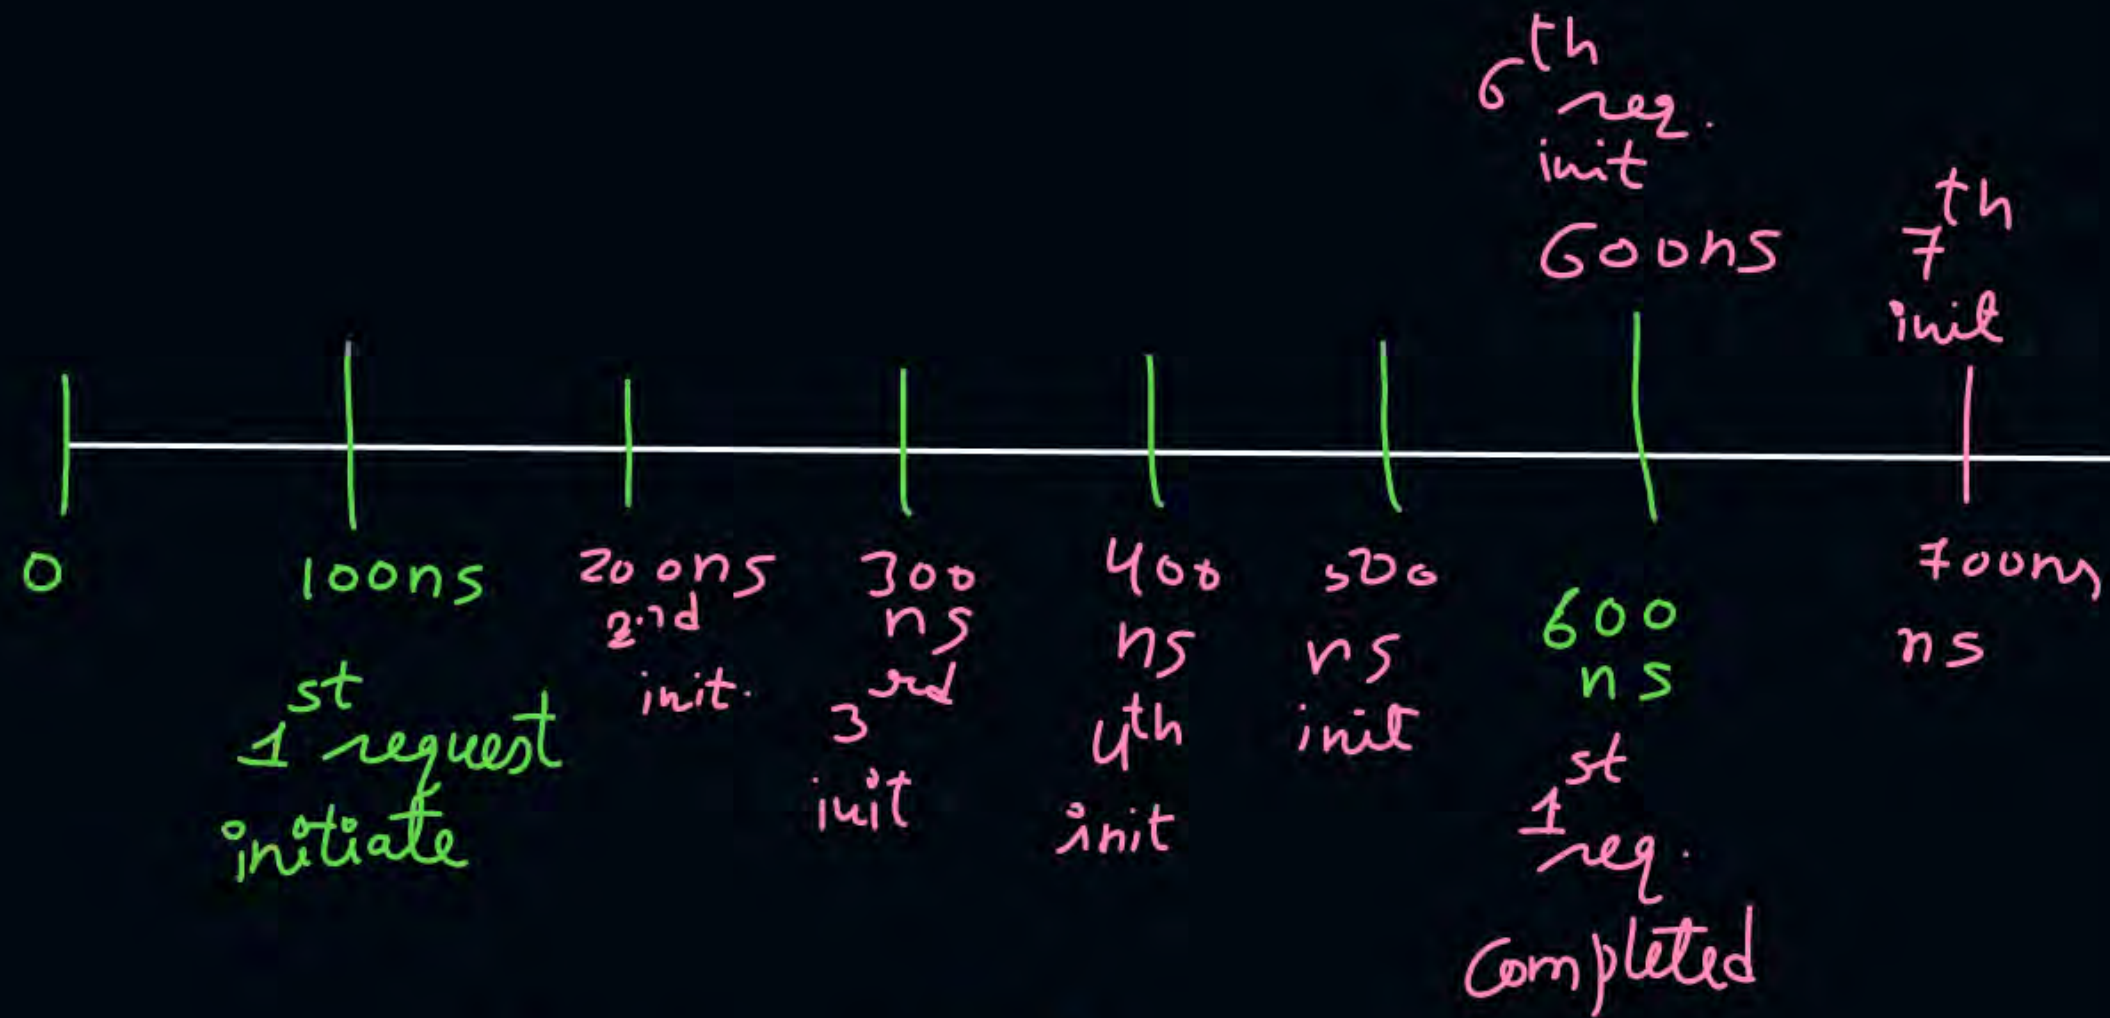 6th
req.
init
600ns
7th
init
0
100ns
1st request
initiate
200ns
2nd
init.
300
ns
3rd
init
400
ns
4th
init
500
ns
init
600
ns
1st
req.
Completed
700ns
ns